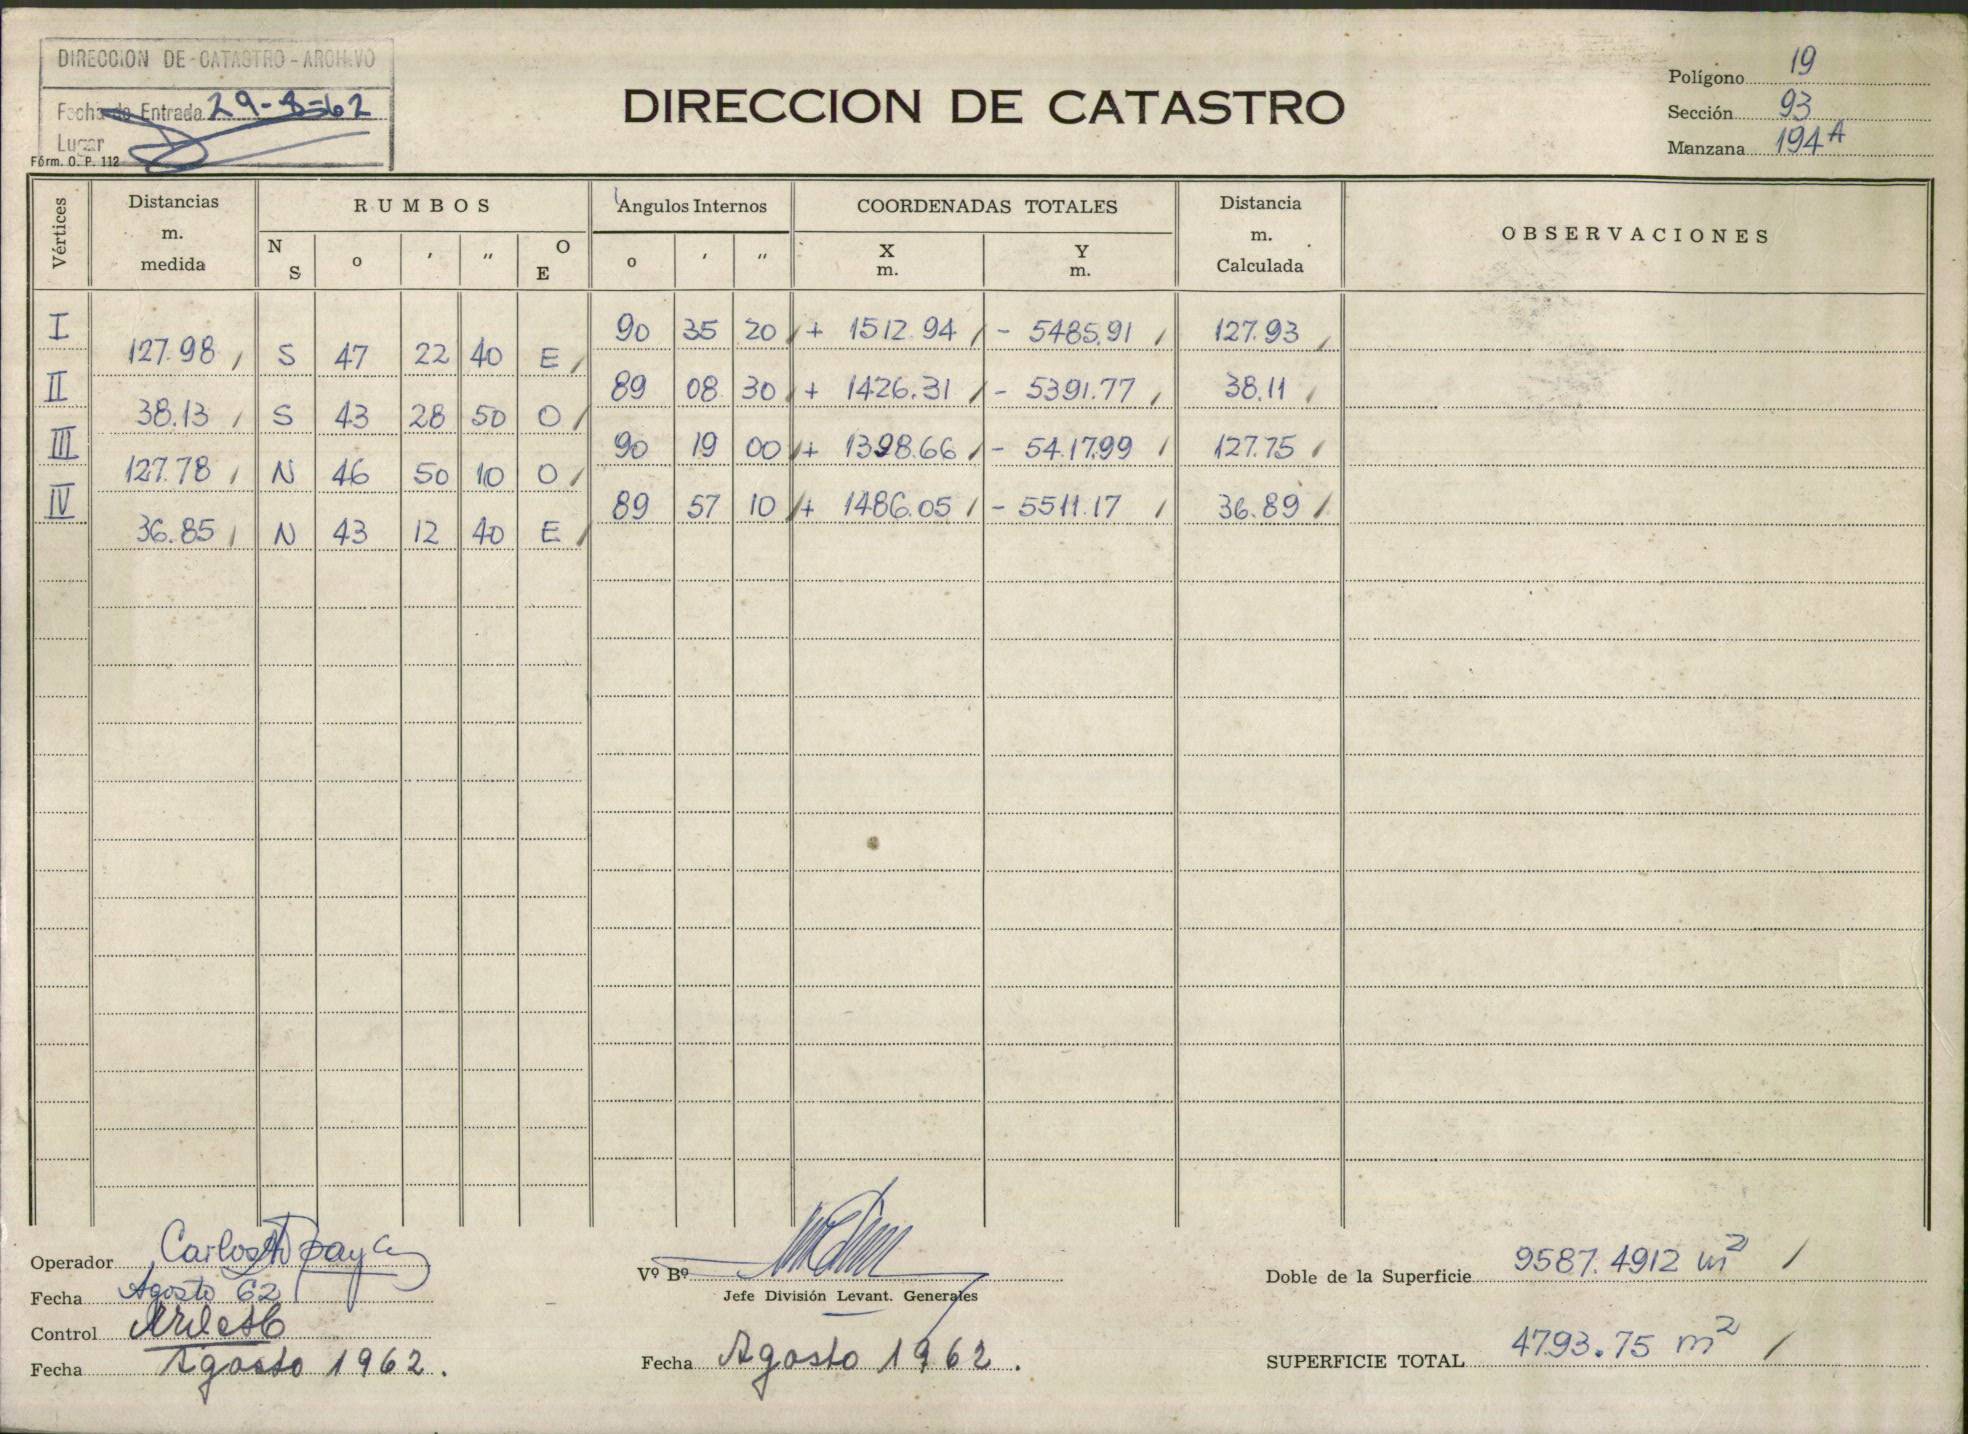 DIRECCION DE CATASTRO - ARCHIVO
Fecha de Entrada 29-8-62
Lugar
Fórm. O. P. 112
DIRECCION DE CATASTRO
Polígono 19
Sección 93
Manzana 194 A
Vértices Distancias m. medida RUMBOS Angulos Internos COORDENADAS TOTALES Distancia m. Calculada OBSERVACIONES
N S o ' " O E o ' " X m. Y m.
I 90 35 20 + 1512.94 - 5485.91 127.93
127.98 S 47 22 40 E
II 89 08 30 + 1426.31 - 5391.77 38.11
38.13 S 43 28 50 O
III 90 19 00 + 1398.66 - 5417.99 127.75
127.78 N 46 50 10 O
IV 89 57 10 + 1486.05 - 5511.17 36.89
36.85 N 43 12 40 E
Operador Carlos
Fecha Agosto 62
Control
Fecha Agosto 1962.
Vº Bº
Jefe División Levant. Generales
Fecha Agosto 1962.
Doble de la Superficie 9587.4912 m²
SUPERFICIE TOTAL 4793.75 m²